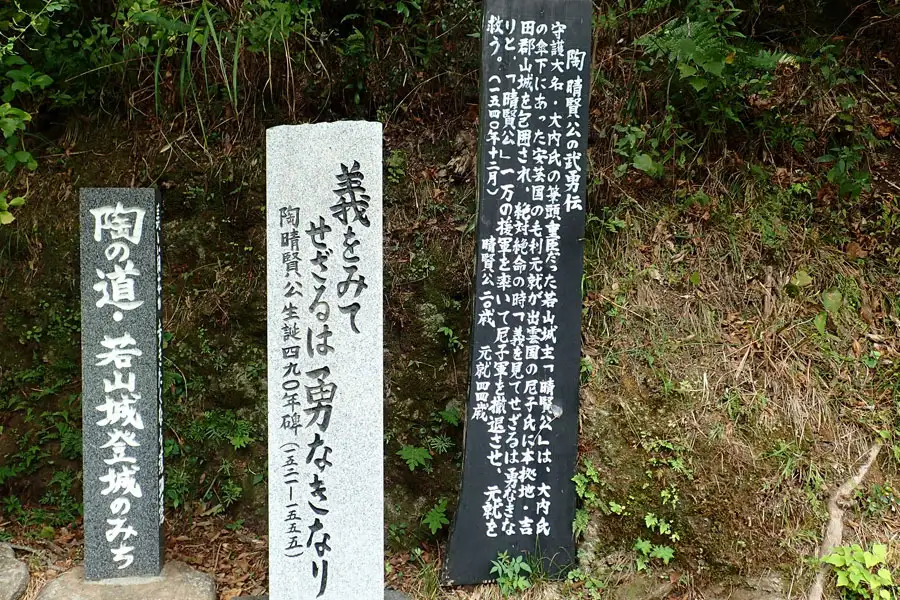 陶 晴賢公の武勇伝
守護大名・大内氏の筆頭重臣だった若山城主「晴賢公」は、大内氏
の傘下にあった安芸国の毛利元就が出雲国の尼子氏に本拠地・吉
田郡山城を包囲され、絶対絶命の時「義を見てせざるは勇なきな
りと、「晴賢公」一万の援軍を率いて尼子軍を撤退させ、元就を
救う。(一五四〇年十二月)
晴賢公二〇歳 元就四四歳
義をみて
せざるは勇なきなり
陶晴賢公生誕四九〇年碑(一五二一ー一五五五)
陶の道・若山城登城のみち